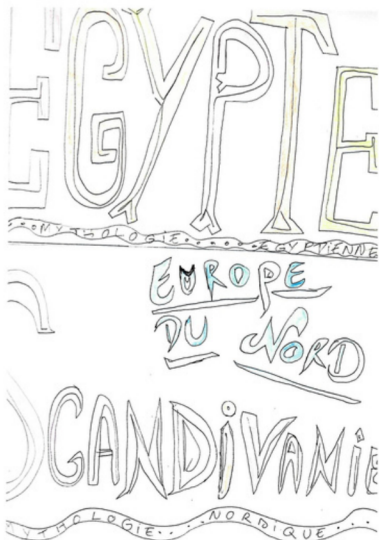 EGYPTE
...MYTHOLOGIE.......EGYPTIENNE
EUROPE
DU NORD
SCANDiVANiE
MYTHOLOGIE.... ....NORDIQUE....